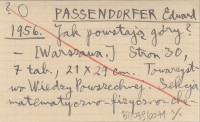 ? O
PASSENDORFER Edward
1956. Jak powstają góry?
– [Warszawa.] Stron 30,
7 tab., 21 X 29 cm. Towarzyst-
wo Wiedzy Powszechnej. Sekcja
matematyczno-fizyczno-che-